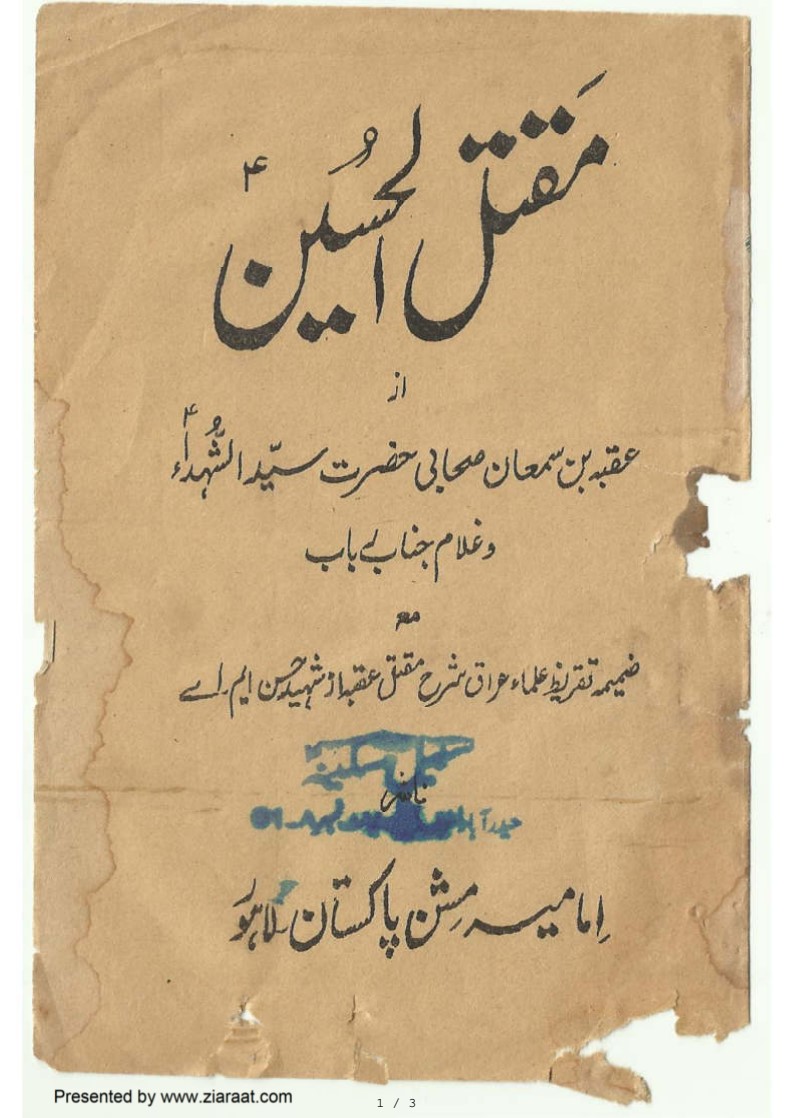 مَقتل الحسُین ؑ
از
عقبہ بن سمعان صحابی حضرت سیّد الشُّہداء ؑ
و غلام جناب رباب
مع
ضمیمہ تقریظ علماء عراق شرح مقتل عقبہ از شہید حسن ایم۔اے
ناشر
اِمامیہ مِشن پاکستان لاہور
Presented by www.ziaraat.com
1 / 3